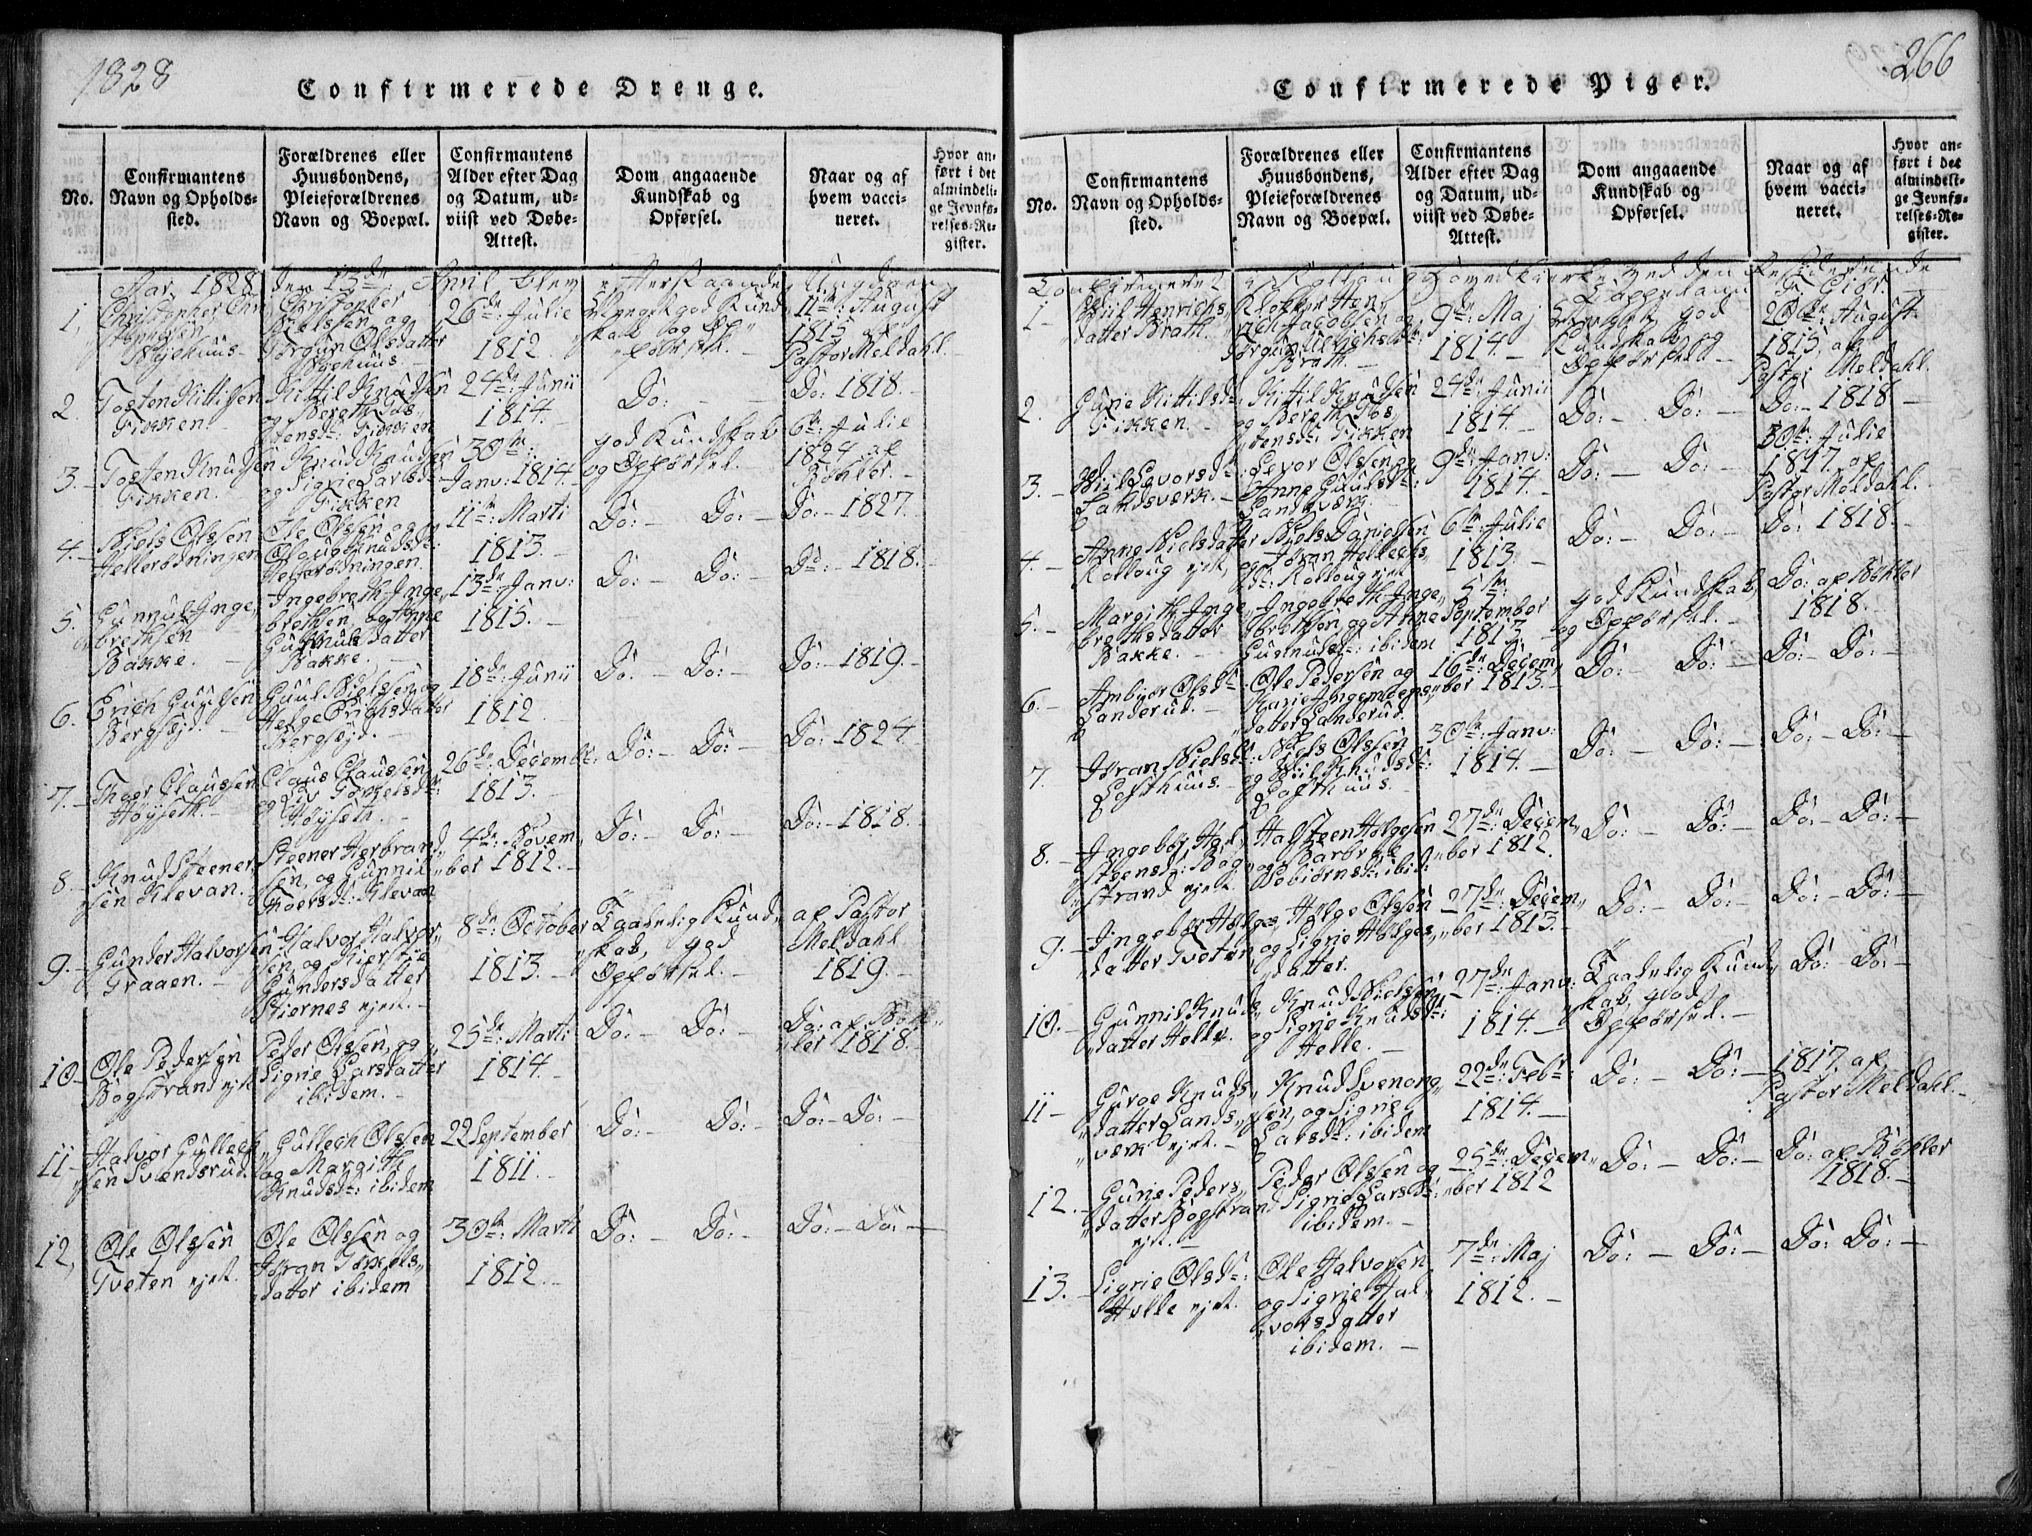 1828
Confirmerede Drenge.
No.
Confirmantens
Navn og Opholds-
sted.
Forældrenes eller
Huusbondens,
Pleieforældrenes
Navn og Boepæl.
Confirmantens
Alder efter Dag
og Datum, ud-
viist ved Døbe-
Attest.
Dom angaaende
Kundskab og
Opførsel.
Naar og af
hvem vacci-
neret.
Hvor an-
ført i det
almindeli-
ge Jevnfø-
relses-Re-
gister.
Aar 1828 den 13de April blev efterstaaende Ungdom
1,
Christopher
Byehuus
Christopher
Nielssen og
Torgun Olsdatter
Byehuus
26de Julie
1812
Meget god Kund-
skab og Op-
førsel.
11te August
1815 af
Pastor Meldahl.
2
Tosten Kittilsen
Fikken
Kittil Knudsen
og Bereth Tos-
tensd: Fikken
24de Junii
1814.
Do:
Do: 1818.
3.
Tosten Knudsen
Fikken.
Knud Knudsen
og Sigrie Larsd:
Fikken
30te
Janv: 1814.
god Kundskab
og Opførsel.
6te Julie
1824 af
Bøhler.
4.
Niels Olssen
Hellerødningen
Ole Olssen og
Knudsd:
Hellerødningen.
11te Marti
1813.
Do: Do:
Do: 1827.
5.
Gunnul Inge-
brethsen
Bakke.
Ingebreth Inge-
brethsen og Anne
Gunnulsdatter
Bakke.
13de Janv:
1815.
Do: Do:
Do: 1818.
6.
Erich Guulsen
Bergsøjd.
Guul Nielsen og
Helge Erichsdatter
Bergsøjd.
18de Junii
1812
Do: Do:
Do: 1819.
7.
Thoer Claussen
Høyseth.
Claus Claussen
og Liv Torkelsd:
Høyseth.
26de Decembr:
1813.
Do: Do:
Do: 1824
8.
Knud Steener-
sen Klevan.
Steener Herbrand-
sen, og Gunnil
Thoersd: Klevan
4de Novem-
ber 1812.
Do: Do:
Do: 1818.
9.
Gunder Halvorsen
Graaen.
Halvor Halvor-
sen, og Kierstie
Gundersdatter
Stiernes ejet.
8de October
1813.
Taalelig Kund-
skab, god
Opførsel.
af Pastor
Meldahl
1819.
10.
Ole Pedersen
Bogstrand ejet
Peder Olssen, og
Sigrie Larsdatter
ibidem.
25de Marti
1814.
Do: Do:
Do: af Bøh-
ler 1818.
11
Halvor Gullech-
sen Svendsrud.
Gullech Olssen
og Margith
Knudsd: ibidem
22 September
1811.
Do: Do:
Do: Do:
12,
Ole Olssen
Tveten ejet.
Ole Olssen og
Jøran Torkels-
datter ibidem
30te Marti
1812.
Do: Do:
Do: Do:
266
Confirmerede Piger.
No.
Confirmantens
Navn og Opholds-
sted.
Forældrenes eller
Huusbondens,
Pleieforældrenes
Navn og Boepæl.
Confirmantens
Alder efter Dag
og Datum, ud-
viist ved Døbe-
Attest.
Dom angaaende
Kundskab og
Opførsel.
Naar og af
hvem vacci-
neret.
Hvor an-
ført i det
almindeli-
ge Jevnfø-
relses-Re-
gister.
Confirmeret i Rollaug Hovedkirke ved den Residerende
1
Henrichs-
datter Brath.
Klokker Hen-
rich Jacobsen og
Torgun
Brath.
9de Maj
1814.
Meget god
Kundskab og
Opførsel
20de August
1815 af
Pastor Meldahl.
2.
Gurie Kittilsd:
Fikken.
Kittil Knudsen
og Bereth Tos-
tensd: Fikken
24de Junii
1814.
Do: Do:
Do: 1818
3.
Levorsd:
Landsverk.
Levor Olssen og
Anne Guulsd:
Landsverk.
9de Janv:
1814.
Do: Do:
30te Julie
1817 af
Pastor Meldahl.
4.
Anne Nielsdatter
Rollaug ejet,
Niels Danielsen
og Jøran Hellechs-
d: Rollaug ejet
6te Julie
1813.
Do: Do:
Do: 1818.
5.
Margith Inge-
brethsdatter
Bakke.
Ingebreth Inge-
brethsen, og Anne
Gunnulsd: ibidem
5te
September
1813.
god Kundskab
og Opførsel.
Do: af Bøhler
1818.
6.
Ambjør Olsd:
Landerud.
Ole Pedersen og
Karie Ingebreths-
datter Landerud.
16de Decem-
ber 1813.
Do: Do:
Do: Do:
7.
Jøran Nielsd:
Lofthuus.
Niels Olssen
og Knudsd:
Lofthuus.
30te Janv:
1814.
Do: Do:
Do: Do:
8.
Ingebør Hal-
steensd: Bog-
strand ejet.
Halsteen Helgesen
og Barbroe
Vebiørnsd: ibid:
27de Decem-
ber 1812.
Do: Do:
Do: Do:
9.
Ingebør Helges-
datter Tveten
Helge Olssen
og Sigrie Helges-
datter.
27de Decem-
ber 1813.
Do: Do:
Do: Do:
10.
Gunnil Knuds-
datter Helle.
Knud Nielsen
og Sigrie Knudsd:
Helle.
27de Janv:
1814.
Taalelig Kund-
skab, god
Opførsel.
Do: Do:
11
Guroe Knuds-
datter Lands-
værk ejet.
Knud Svenung-
sen, og Sigrie
Larsd: ibidem
22de Febr:
1814.
Do: Do:
1817 af
Pastor Meldahl.
12.
Gurie Peders-
datter Bogstrand
ejet.
Peder Olssen og
Sigrie Larsd:
ibidem.
25de Decem-
ber 1812
Do: Do:
Do: af Bøhler
1818.
13.
Sigrie Olsd:
Helle ejet.
Ole Halvorsen
og Sigrie Hal-
vorsdatter
ibidem.
7de Maj
1812.
Do: Do:
Do: Do: